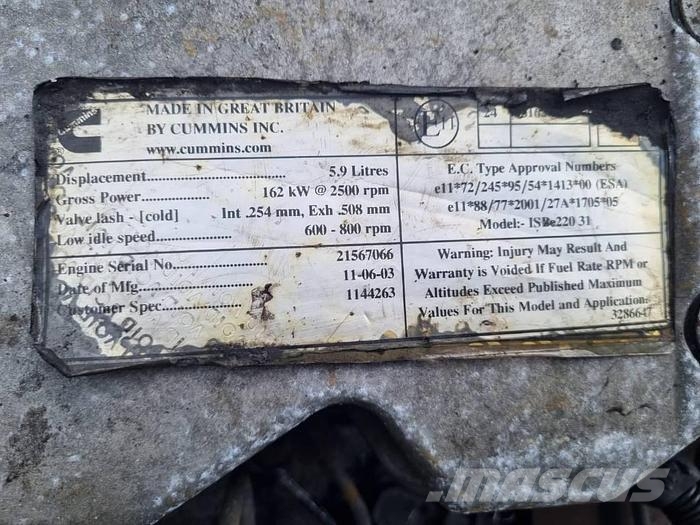 cummins
MADE IN GREAT BRITAIN
BY CUMMINS INC.
www.cummins.com
Displacement 5.9 Litres
Gross Power 162 kW @ 2500 rpm
Valve lash - [cold] Int .254 mm, Exh .508 mm
Low idle speed 600 - 800 rpm
Engine Serial No 21567066
Date of Mfg 11-06-03
Customer Spec 1144263
E 11
24
E.C. Type Approval Numbers
e11*72/245*95/54*1413*00 (ESA)
e11*88/77*2001/27A*1705*05
Model:- ISBe220 31
Warning: Injury May Result And
Warranty is Voided If Fuel Rate RPM or
Altitudes Exceed Published Maximum
Values For This Model and Application.
3286647
mascus